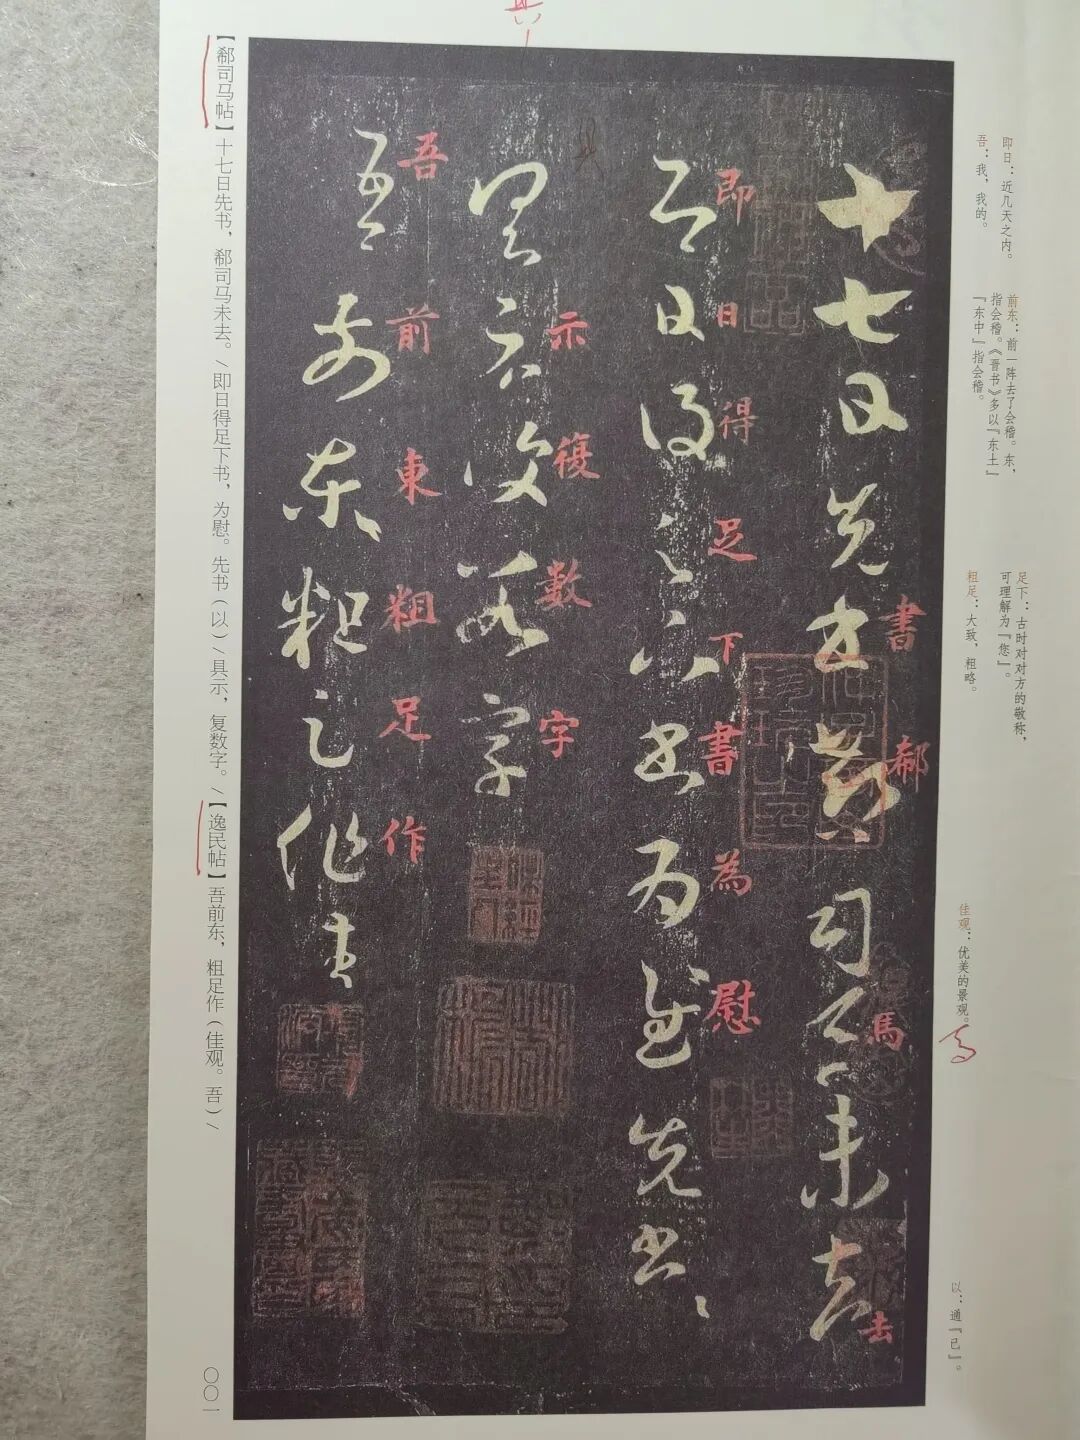 即日：近几天之内。
吾：我，我的。
前东：前一阵去了会稽。东，
指会稽。《晋书》多以『东土』
『东中』指会稽。
足下：古时对对方的敬称，
可理解为『您』。
粗足：大致，粗略。
佳观：优美的景观。
以：通『已』。
十七日先書郗司馬未去
書郗馬去
即日得足下書為慰先書以
即日得足下書為慰
具示復數字
示復數字
吾前東粗足作佳
吾前東粗足作
【郗司马帖】十七日先书，郗司马未去。/即日得足下书，为慰。先书（以）/具示，复数字。/【逸民帖】吾前东，粗足作（佳观。吾）/
〇〇一